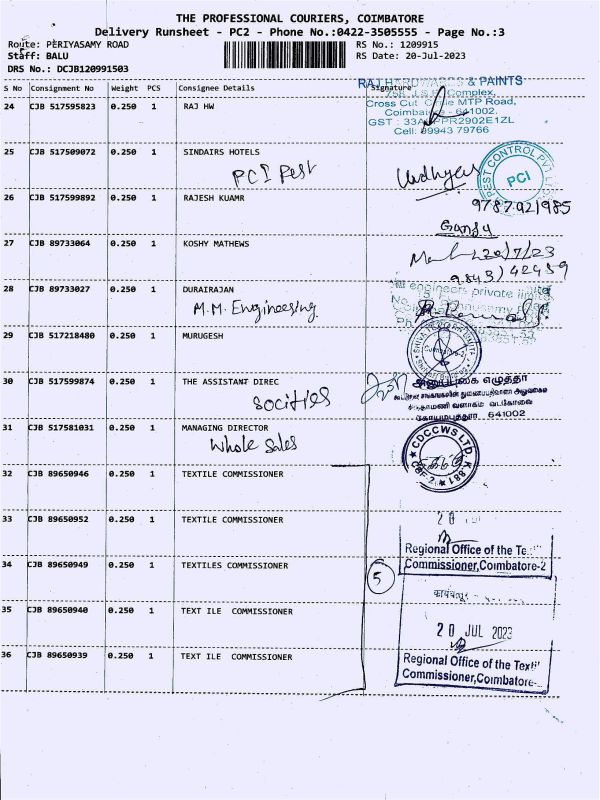 THE PROFESSIONAL COURIERS, COIMBATORE
Delivery Runsheet - PC2 - Phone No.:0422-3505555 - Page No.:3
Route: PERIYASAMY ROAD RS No.: 1209915
Staff: BALU RS Date: 20-Jul-2023
DRS No.: DCJB120991503
S No Consignment No Weight PCS Consignee Details Signature
RAJ HARDWARES & PAINTS
Complex,
24 CJB 517595823 0.250 1 RAJ HW
Cross Cut MTP Road,
Coimbatore - 641002.
Cell: 99943 79766
25 CJB 517509072 0.250 1 SINDAIRS HOTELS
PCI Pest
PEST CONTROL PVT
PCI
26 CJB 517599892 0.250 1 RAJESH KUAMR
9787921985
27 CJB 89733064 0.250 1 KOSHY MATHEWS
20/7/23
28 CJB 89733027 0.250 1 DURAIRAJAN
engineers private limited
M.M. Engineering
29 CJB 517218480 0.250 1 MURUGESH
Coimbatore-2
30 CJB 517599874 0.250 1 THE ASSISTANT DIREC
Socities
641002
31 CJB 517581031 0.250 1 MANAGING DIRECTOR
Whole Sales
CDCCWS LTD. K.881
CBE-2
32 CJB 89650946 0.250 1 TEXTILE COMMISSIONER
33 CJB 89650952 0.250 1 TEXTILE COMMISSIONER
20
Regional Office of the
34 CJB 89650949 0.250 1 TEXTILES COMMISSIONER
Commissioner,Coimbatore-2
5
35 CJB 89650940 0.250 1 TEXT ILE COMMISSIONER
20 JUL 2023
36 CJB 89650939 0.250 1 TEXT ILE COMMISSIONER
Regional Office of the
Commissioner,Coimbatore-